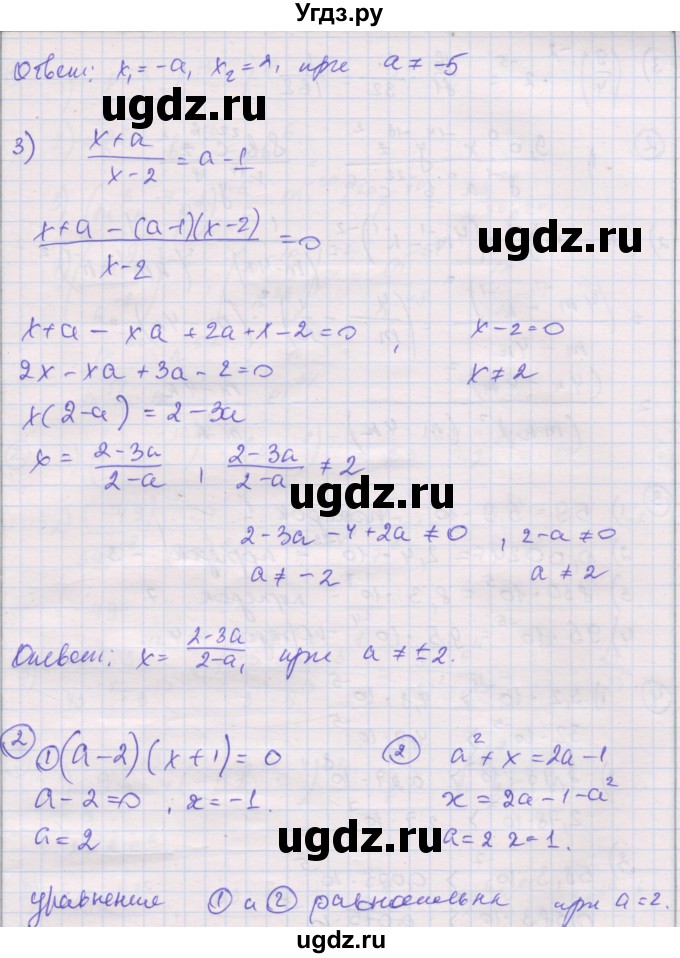 Угдз.ру
Ответ: x₁ = -a, x₂ = 1, при a ≠ -5
ugdz.ru
3) (x+a)/(x-2) = a - 1
ugdz.ru
(x+a - (a-1)(x-2))/(x-2) = 0
x+a - xa + 2a + x - 2 = 0 , x - 2 = 0
2x - xa + 3a - 2 = 0 x ≠ 2
ugdz.ru
x(2-a) = 2 - 3a
x = (2-3a)/(2-a) , (2-3a)/(2-a) ≠ 2
ugdz.ru
2 - 3a - 4 + 2a ≠ 0 , 2-a ≠ 0
a ≠ -2 a ≠ 2
ugdz.ru
Ответ: x = (2-3a)/(2-a), при a ≠ ±2.
② ① (a-2)(x+1) = 0 ② a² + x = 2a - 1
a - 2 = 0 , x = -1. x = 2a - 1 - a²
ugdz.ru
a = 2 a = 2 2 = 1.
уравнение ① и ② равносильны при a = 2.
ugdz.ru